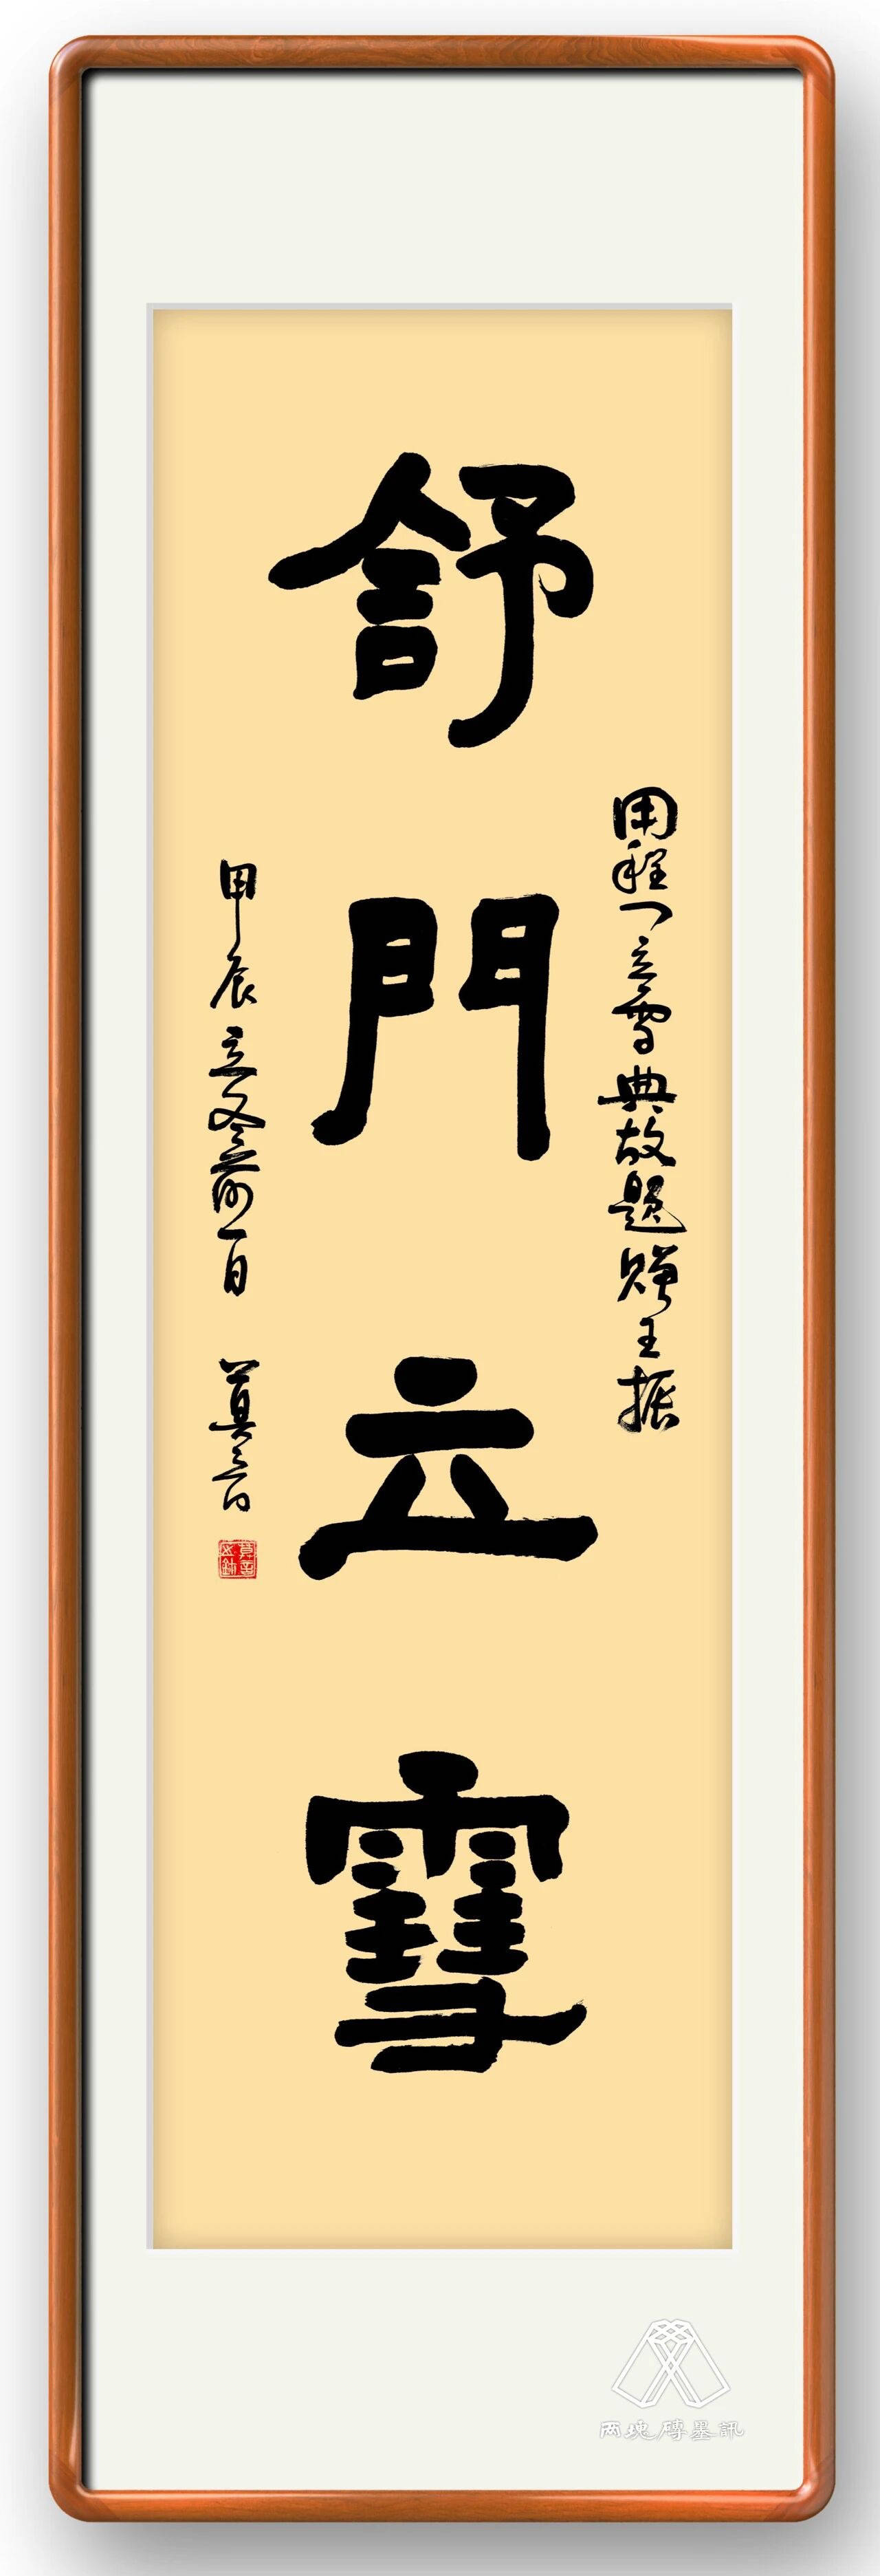 舒門立雪
用程门立雪典故題赠王振
甲辰立冬前一日
莫言
两块磚墨訊